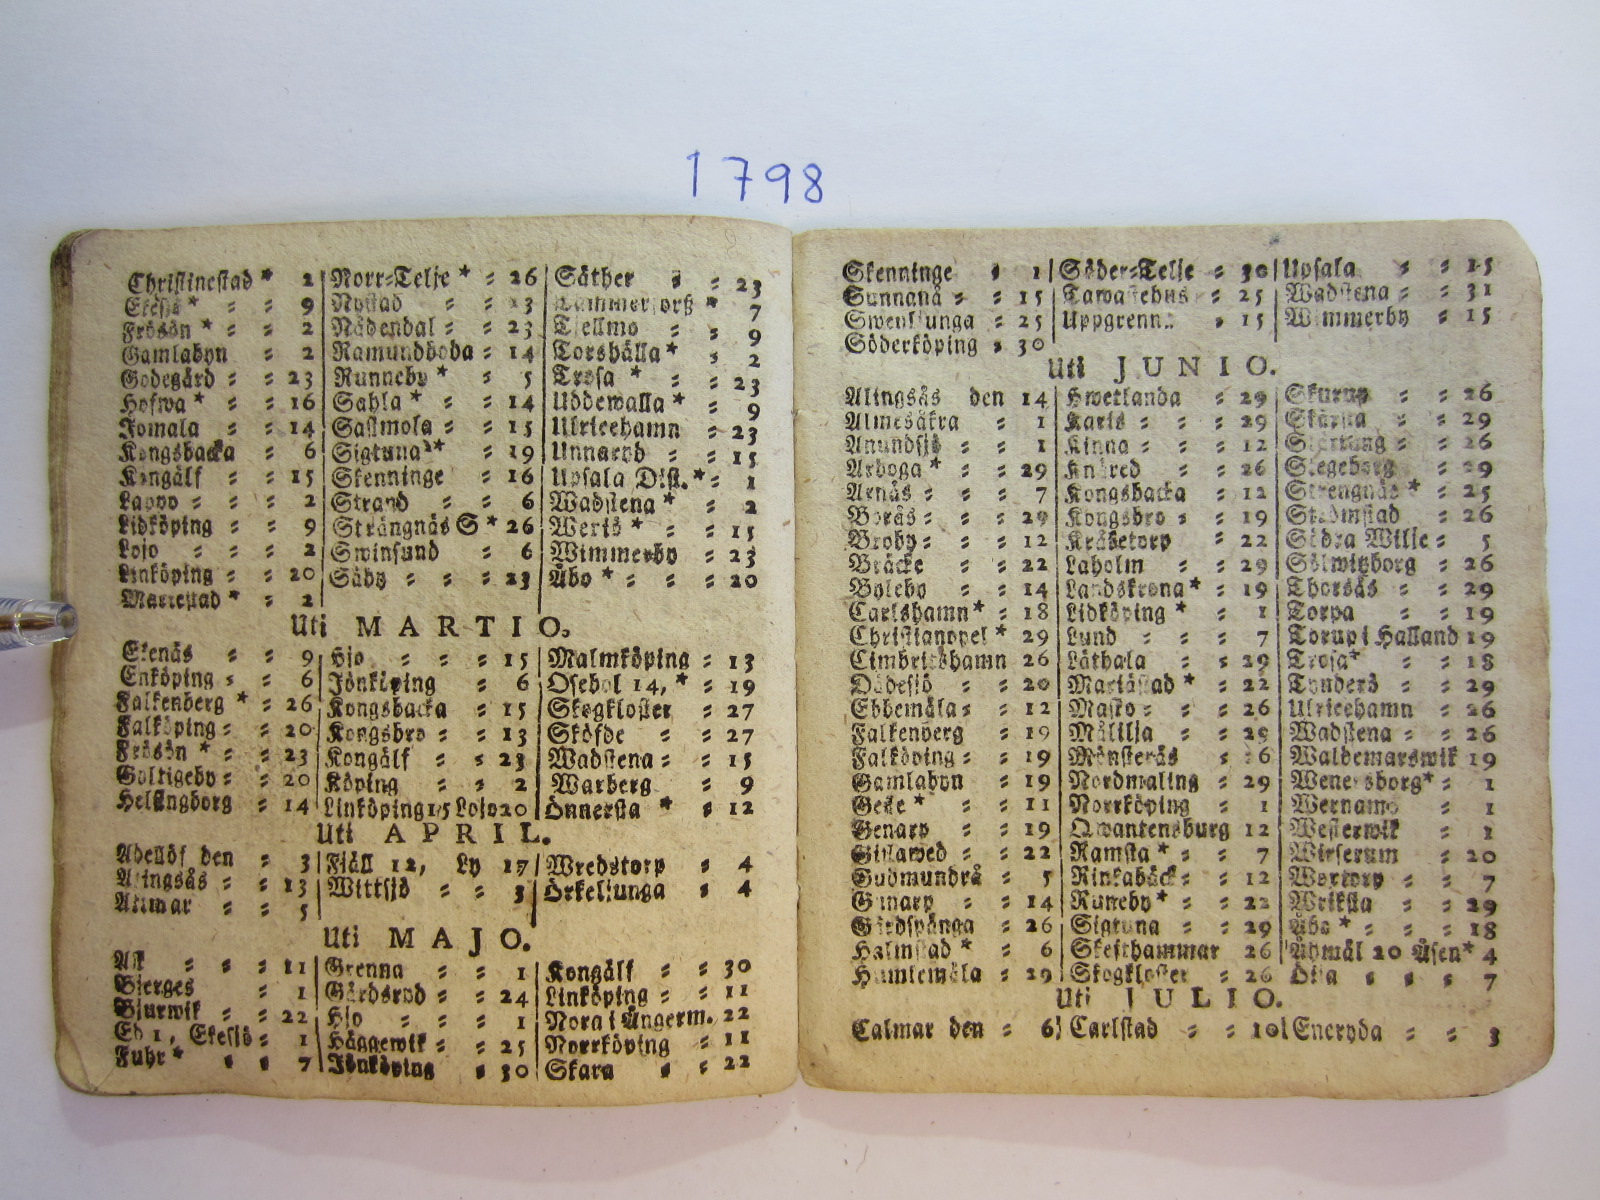 1798
Christinestad * 2
Ekesjö * = = 9
Frösön * = = 2
Gamlabyn = 2
Godegård = = 23
Hofwa * = = 16
Jomala = = 14
Kongsbacka = 6
Kongälf = = 15
Lappo = = = 2
Lidköping = = 9
Lojo = = = 2
Linköping = = 20
Mariestad * = 2
Norr=Telje * = 26
Nystad = = 23
Nådendal = = 23
Ramundboda = 14
Runneby * = 5
Sahla * = = 14
Sastmola = = 15
Sigtuna * = 19
Skenninge = 16
Strand = = 6
Strängnäs S * 26
Swinsund = 6
Säby = = = 23
Säther = = 23
* 7
Tjellmo = = 9
Torshälla * = 2
Trosa * = = 23
Uddewalla * = 9
Ulricehamn = 23
Unnaryd = = 15
Upsala Dist. * = 1
Wadstena * = 2
Weris * = = 15
Wimmerby = 23
Åbo * = = = 20
Uti MARTIO.
Ekenäs = = 9
Enköping = = 6
Falkenberg * = 26
Falköping = = 20
Frösön * = = 23
Goltigeby = = 20
Helsingborg = 14
Hjo = = = 15
Jönköping = 6
Kongsbacka = 15
Kongsbro = = 13
Kongälf = = 23
Köping = = 2
Linköping 15 Lojo 20
Malmköping = 13
Osebol 14, * = 19
Skogkloster = 27
Sköfde = = 27
Wadstena = = 15
Warberg = 9
Önnersta * = 12
Uti APRIL.
Adellöf den = 3
Alingsås = = 13
Attmar = = 5
Fjäll 12, Ly 17
Wittsjö = = 3
Wredstorp = 4
Örkeljunga = 4
Uti MAJO.
Ask = = = 11
Bjerges = 1
Bjurwik = = 22
Ed 1, Ekesjö = 1
Fuhr * = = 7
Grenna = = 1
Gårdsryd = = 24
Hjo = = = 1
Häggewik = = 25
Jönköping = 30
Kongälf = = 30
Linköping = = 11
Nora i Ångerm. 22
Norrköping = 11
Skara = = 22
Skenninge = 1
Sunnanå = = 15
Swenljunga = 25
Söderköping = 30
Söder=Telje = 30
Tawastehus = 25
Uppgrenn.. = 15
Upsala = = 15
Wadstena = = 31
Wimmerby = 15
Uti JUNIO.
Alingsås den 14
Almesåkra = 1
Anundsjö = = 1
Arboga * = = 29
Arnäs = = = 7
Borås = = = 29
Broby = = = 12
Bräcke = = 22
Byleby = = 14
Carlshamn * = 18
Christianopel * 29
Cimbritshamn 26
Dädesjö = = 20
Ebbemåla = = 12
Falkenberg = 19
Falköping = = 19
Gamlabyn = 19
Gefle * = = 11
Genarp = = 19
Gislawed = = 22
Gudmundrå = 5
= = 14
Gårdspånga = 26
Halmstad * = 6
Humlemåla = 29
Hwetlanda = 29
Karis = = 29
Kinna = = = 12
Knäred = = 26
Kongsbacka = 12
Kongsbro = = 19
Kråketorp = 22
Laholm = = 29
Landskrona * = 19
Lidköping * = 1
Lund = = = 7
Låthala = = 29
Mariästad * = 22
Masko = = = 26
Målilla = = 29
Mönsterås = 26
Nordmaling = 29
Norrköping = 1
Qwantensburg 12
Ramsta * = = 7
Rinkabäck = = 12
Runeby * = = 22
Sigtuna = = 29
Skefthammar 26
Skogkloster = 26
Skurup = = 26
= = 29
= 26
Slegeborg = 29
Strengnäs * = 25
Strömstad = 26
Södra Wille = 5
Sölwitzborg = 26
Thorsås = = 29
Torpa = = 19
Torup i Halland 19
Trosa * = = 18
Tynderö = = 29
Ulricehamn = 26
Wadstena = = 26
Waldemarswik 19
Wenersborg * = 1
Wernamo = 1
Westerwik = 1
Wirserum = 20
= = 7
Wriksta = = 29
Åbo * = = = 18
Ådmål 20 Åsen * 4
= = = 7
Uti JULIO.
Calmar den = 6
Carlstad = = 10
Eneryda = = 3